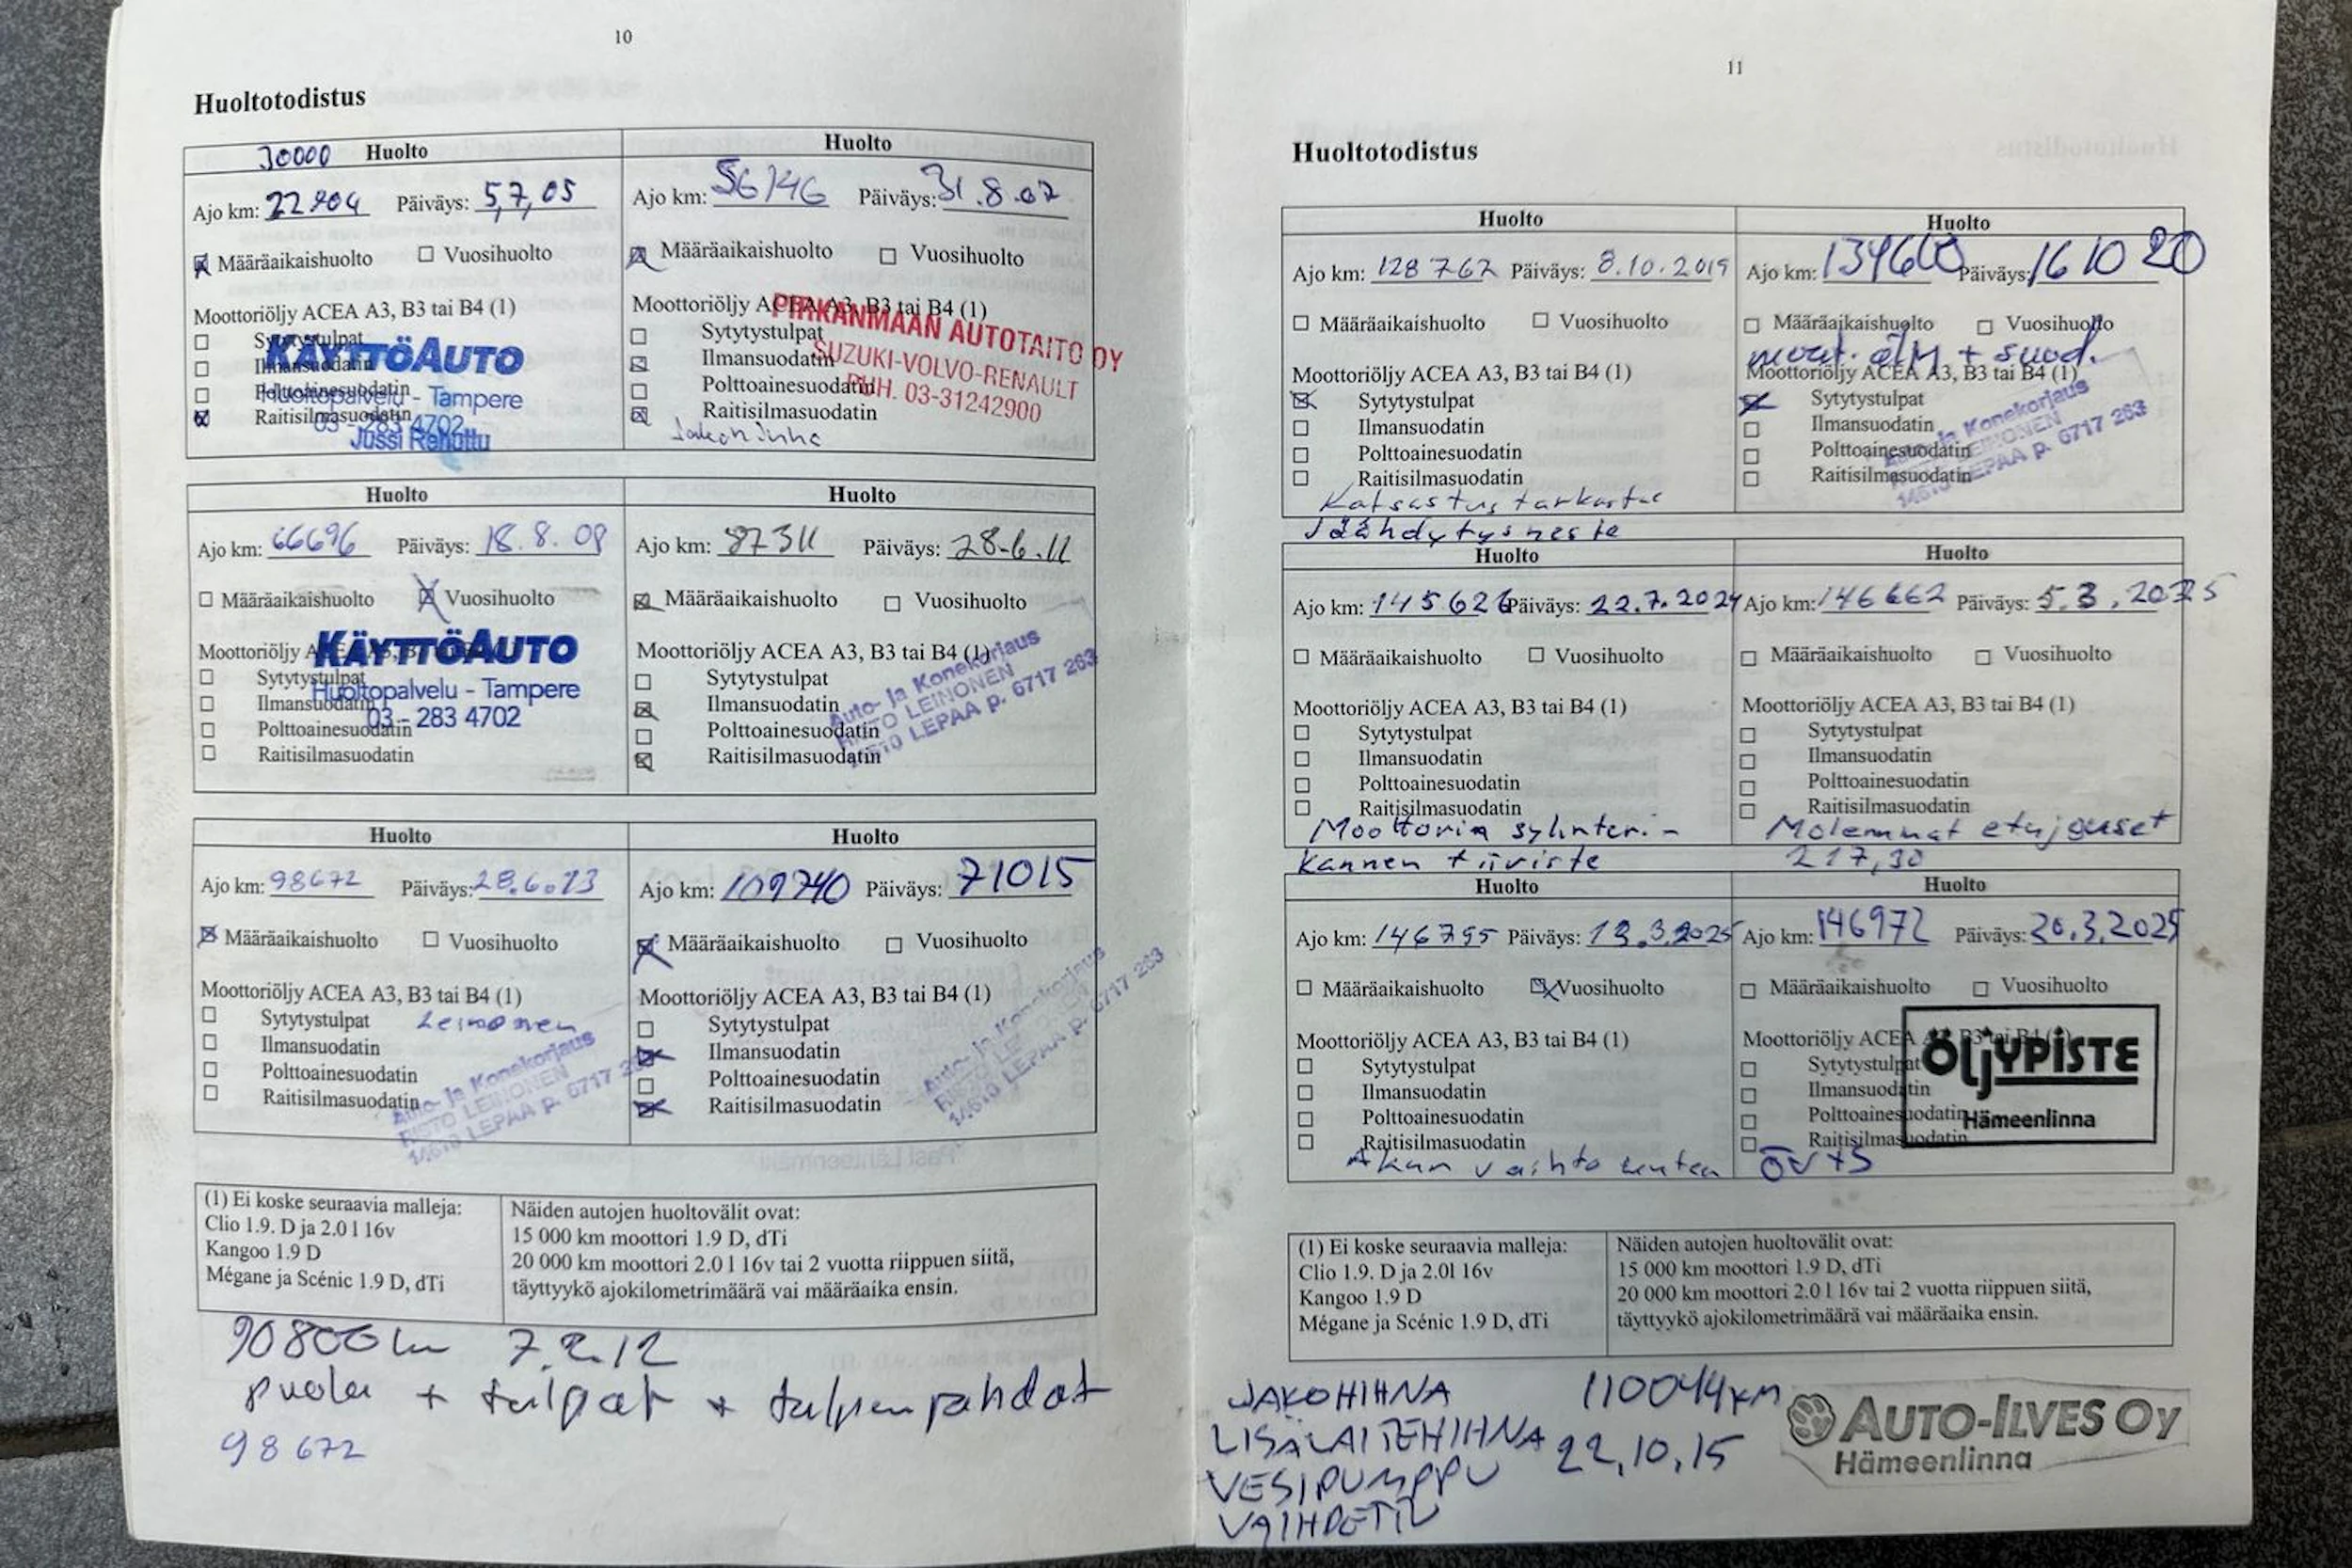 10
Huoltotodistus
30000 Huolto
Ajo km: 22904 Päiväys: 5,7,05
Määräaikaishuolto Vuosihuolto
Moottoriöljy ACEA A3, B3 tai B4 (1)
Sytytystulpat
Ilmansuodatin
Polttoainesuodatin
Raitisilmasuodatin
KÄYTTÖAUTO
Huoltopalvelu - Tampere
03 - 283 4702
Jussi
Huolto
Ajo km: 56746 Päiväys: 31.8.07
Määräaikaishuolto Vuosihuolto
Moottoriöljy ACEA A3, B3 tai B4 (1)
Sytytystulpat
Ilmansuodatin
Polttoainesuodatin
Raitisilmasuodatin
PIRKANMAAN AUTOTAITO OY
SUZUKI-VOLVO-RENAULT
PUH. 03-31242900
Huolto
Ajo km: 66696 Päiväys: 18.8.08
Määräaikaishuolto Vuosihuolto
Moottoriöljy ACEA A3, B3 tai B4 (1)
Sytytystulpat
Ilmansuodatin
Polttoainesuodatin
Raitisilmasuodatin
KÄYTTÖAUTO
Huoltopalvelu - Tampere
03 - 283 4702
Huolto
Ajo km: 87311 Päiväys: 28.6.11
Määräaikaishuolto Vuosihuolto
Moottoriöljy ACEA A3, B3 tai B4 (1)
Sytytystulpat
Ilmansuodatin
Polttoainesuodatin
Raitisilmasuodatin
Auto- ja Konekorjaus
RISTO LEINONEN
14610 LEPAA p. 6717 263
Huolto
Ajo km: 98672 Päiväys: 28.6.13
Määräaikaishuolto Vuosihuolto
Moottoriöljy ACEA A3, B3 tai B4 (1)
Sytytystulpat Leinonen
Ilmansuodatin
Polttoainesuodatin
Raitisilmasuodatin
Auto- ja Konekorjaus
RISTO LEINONEN
14610 LEPAA p. 6717 263
Huolto
Ajo km: 109740 Päiväys: 71015
Määräaikaishuolto Vuosihuolto
Moottoriöljy ACEA A3, B3 tai B4 (1)
Sytytystulpat
Ilmansuodatin
Polttoainesuodatin
Raitisilmasuodatin
Auto- ja Konekorjaus
RISTO LEINONEN
14610 LEPAA p. 6717 263
(1) Ei koske seuraavia malleja:
Clio 1.9. D ja 2.0 l 16v
Kangoo 1.9 D
Mégane ja Scénic 1.9 D, dTi
Näiden autojen huoltovälit ovat:
15 000 km moottori 1.9 D, dTi
20 000 km moottori 2.0 l 16v tai 2 vuotta riippuen siitä,
täyttyykö ajokilometrimäärä vai määräaika ensin.
90800 km 7.2.12
puola + tulpat + tulpanjohdot
98672
11
Huoltotodistus
Huolto
Ajo km: 128767 Päiväys: 8.10.2019
Määräaikaishuolto Vuosihuolto
Moottoriöljy ACEA A3, B3 tai B4 (1)
Sytytystulpat
Ilmansuodatin
Polttoainesuodatin
Raitisilmasuodatin
Katsastus tarkastus
Jäähdytysneste
Huolto
Ajo km: 134660 Päiväys: 161020
Määräaikaishuolto Vuosihuolto
moot. öljy + suod.
Moottoriöljy ACEA A3, B3 tai B4 (1)
Sytytystulpat
Ilmansuodatin
Polttoainesuodatin
Raitisilmasuodatin
Auto- ja Konekorjaus
RISTO LEINONEN
14610 LEPAA p. 6717 263
Huolto
Ajo km: 145626 Päiväys: 22.7.2024
Määräaikaishuolto Vuosihuolto
Moottoriöljy ACEA A3, B3 tai B4 (1)
Sytytystulpat
Ilmansuodatin
Polttoainesuodatin
Raitisilmasuodatin
Moottorin sylinteri-
kannen tiiviste
Huolto
Ajo km: 146662 Päiväys: 5.3.2025
Määräaikaishuolto Vuosihuolto
Moottoriöljy ACEA A3, B3 tai B4 (1)
Sytytystulpat
Ilmansuodatin
Polttoainesuodatin
Raitisilmasuodatin
Molemmat etujouset
217,30
Huolto
Ajo km: 146795 Päiväys: 13.3.2025
Määräaikaishuolto Vuosihuolto
Moottoriöljy ACEA A3, B3 tai B4 (1)
Sytytystulpat
Ilmansuodatin
Polttoainesuodatin
Raitisilmasuodatin
Akun vaihto uuteen
Huolto
Ajo km: 146972 Päiväys: 20.3.2025
Määräaikaishuolto Vuosihuolto
Moottoriöljy ACEA A3, B3 tai B4 (1)
Sytytystulpat
Ilmansuodatin
Polttoainesuodatin
Raitisilmasuodatin
ÖLJYPISTE
Hämeenlinna
ÖV+S
(1) Ei koske seuraavia malleja:
Clio 1.9. D ja 2.0l 16v
Kangoo 1.9 D
Mégane ja Scénic 1.9 D, dTi
Näiden autojen huoltovälit ovat:
15 000 km moottori 1.9 D, dTi
20 000 km moottori 2.0 l 16v tai 2 vuotta riippuen siitä,
täyttyykö ajokilometrimäärä vai määräaika ensin.
JAKOHIHNA 110044 km
LISÄLAITEHIHNA 22,10,15
VESIPUMPPU
VAIHDETTU
AUTO-ILVES OY
Hämeenlinna